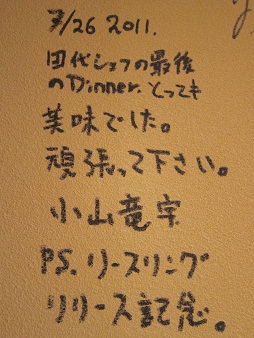 7/26 2011.
田代シェフの最後
のDinner. とっても
美味でした。
頑張って下さい。
小山竜宇
PS. リースリング
リリース記念。